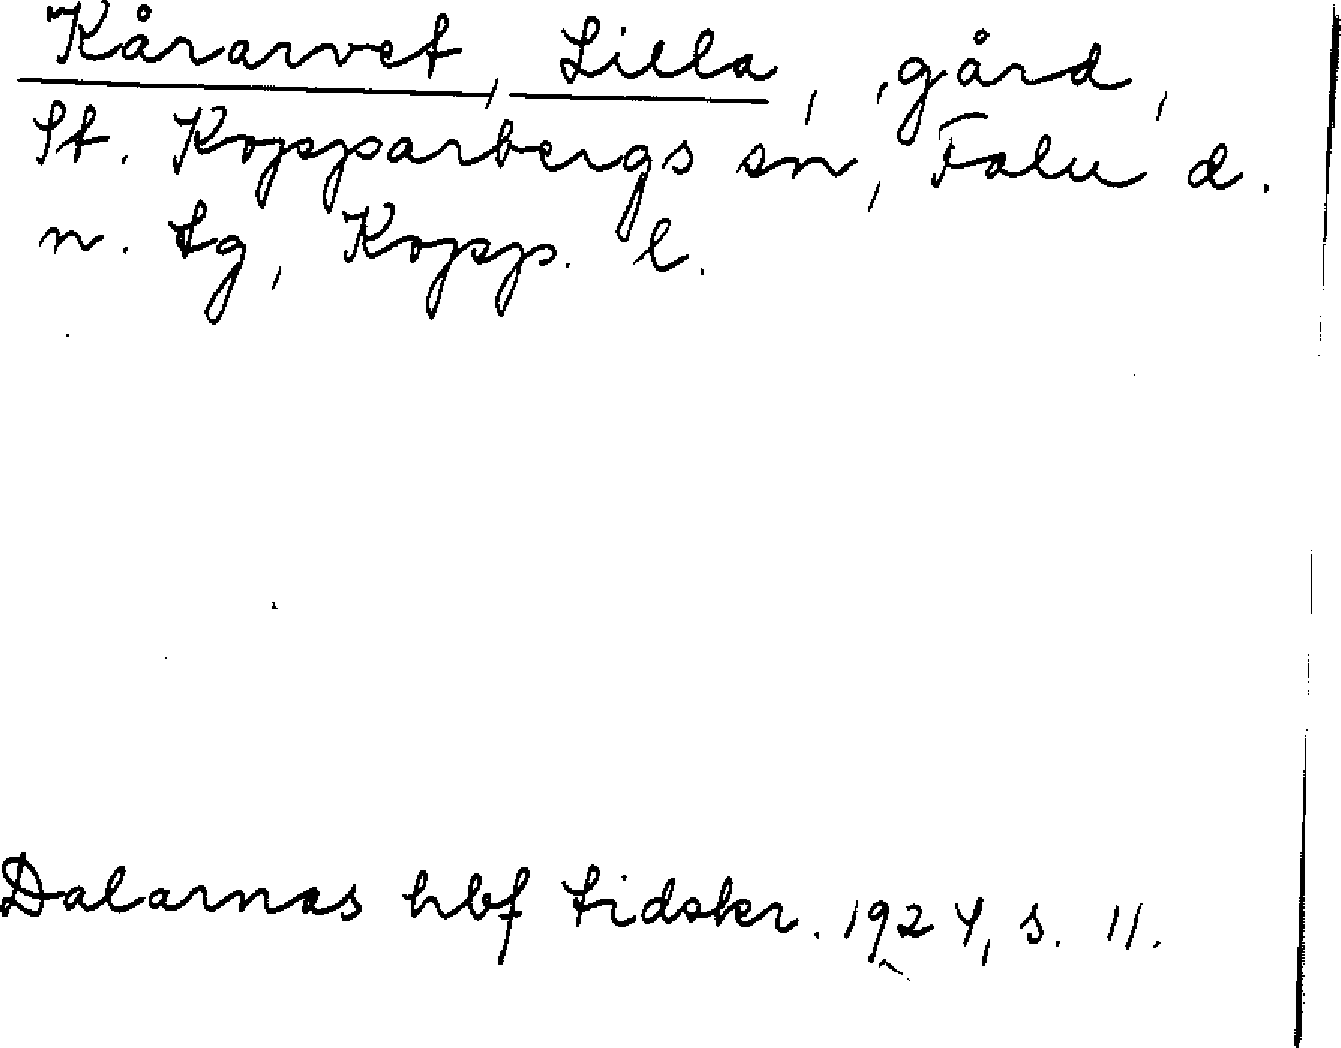 Kårarvet, Lilla, gård,
St. Kopparbergs sn, Falu d.
n. tg, Kopp. l.
Dalarnas hbf tidskr. 1924, s. 11.